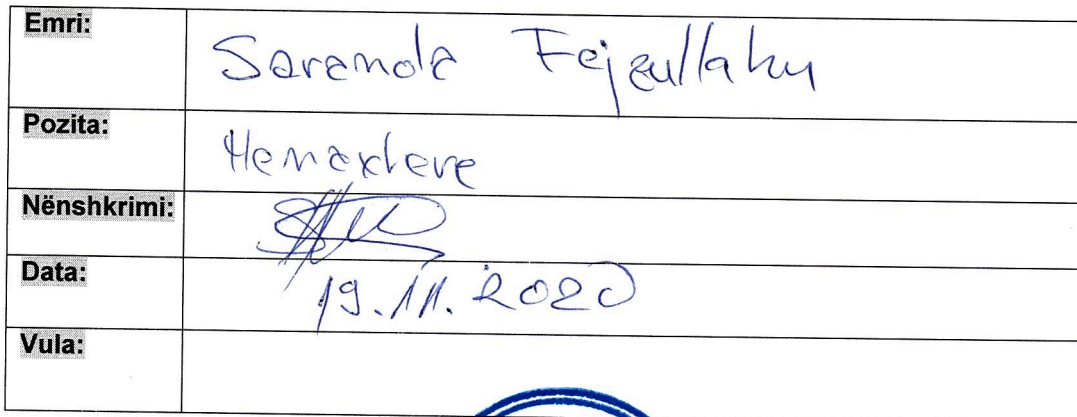 Emri: Saranda Fejzullahu
Pozita: Menaxhere
Nënshkrimi:
Data: 19.11.2020
Vula: